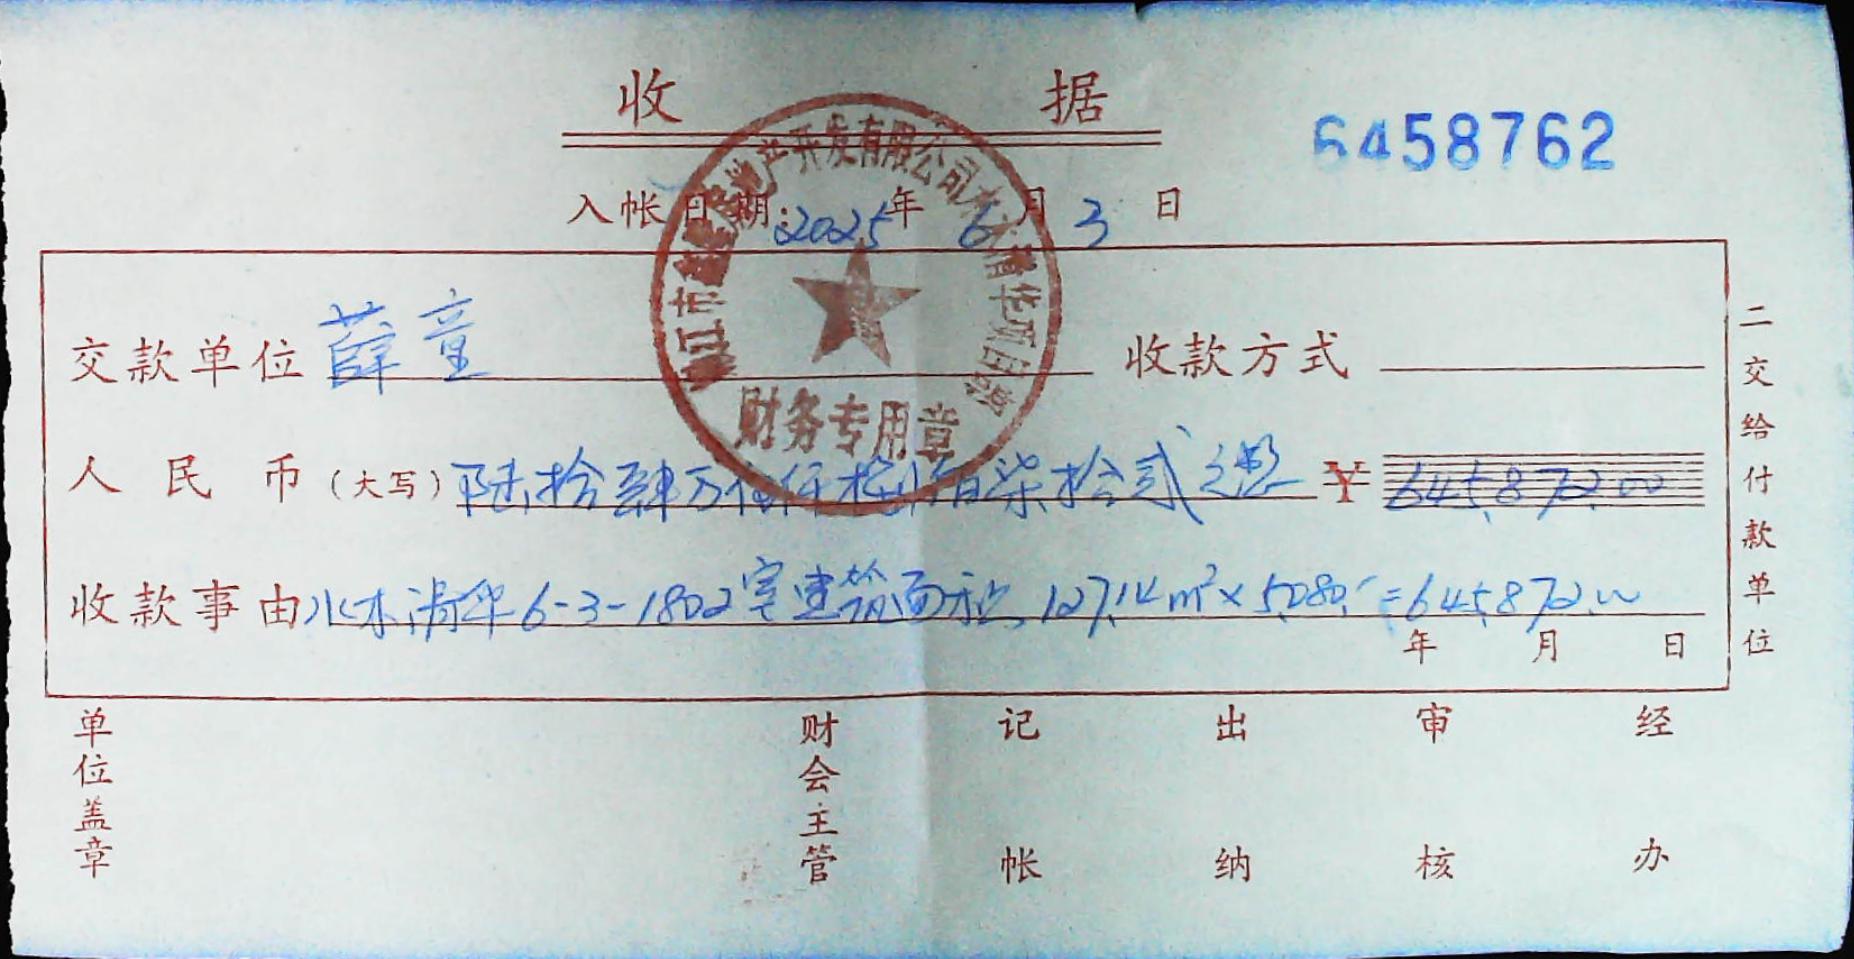 收据
6458762
入帐日期:2025年6月3日
交款单位 薛童 收款方式
人民币(大写)陆拾肆万伍仟捌佰柒拾贰元整 ¥645872.00
收款事由 水木清华6-3-1802室建筑面积 127.14m²×5080.-=645872.00
年 月 日
二交给付款单位
单位盖章 财会主管 记帐 出纳 审核 经办
江市 房地产开发有限公司水木清华项目部
财务专用章